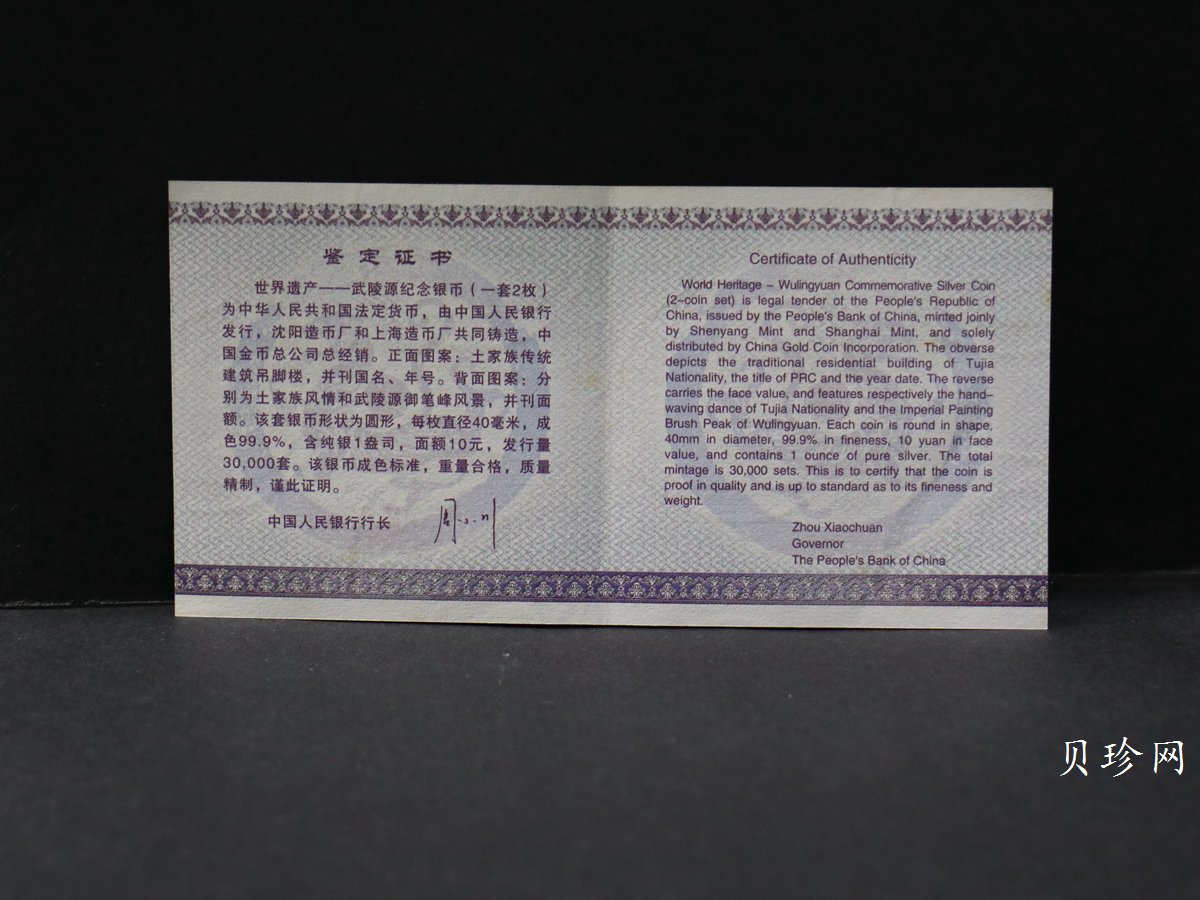 鉴定证书
世界遗产——武陵源纪念银币（一套2枚）
为中华人民共和国法定货币，由中国人民银行
发行，沈阳造币厂和上海造币厂共同铸造，中
国金币总公司总经销。正面图案：土家族传统
建筑吊脚楼，并刊国名、年号。背面图案：分
别为土家族风情和武陵源御笔峰风景，并刊面
额。该套银币形状为圆形，每枚直径40毫米，成
色99.9%，含纯银1盎司，面额10元，发行量
30,000套。该银币成色标准，重量合格，质量
精制，谨此证明。
中国人民银行行长
Certificate of Authenticity
World Heritage – Wulingyuan Commemorative Silver Coin
(2–coin set) is legal tender of the People's Republic of
China, issued by the People's Bank of China, minted joinly
by Shenyang Mint and Shanghai Mint, and solely
distributed by China Gold Coin Incorporation. The obverse
depicts the traditional residential building of Tujia
Nationality, the title of PRC and the year date. The reverse
carries the face value, and features respectively the hand–
waving dance of Tujia Nationality and the Imperial Painting
Brush Peak of Wulingyuan. Each coin is round in shape,
40mm in diameter, 99.9% in fineness, 10 yuan in face
value, and contains 1 ounce of pure silver. The total
mintage is 30,000 sets. This is to certify that the coin is
proof in quality and is up to standard as to its fineness and
weight.
Zhou Xiaochuan
Governor
The People's Bank of China
贝珍网